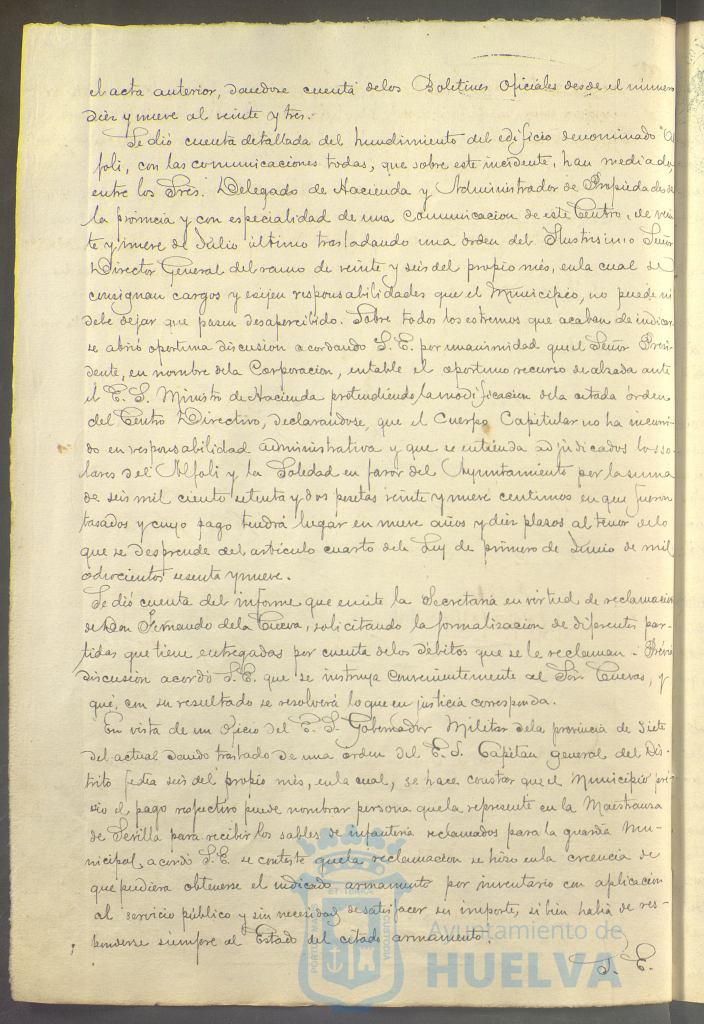 el acta anterior, dandose cuenta delos Boletines Oficiales desde el número
diez y nueve al veinte y tres.-
Se dió cuenta detallada del hundimiento del edificio denominado "Al
foli, con las comunicaciones todas, que sobre este incidente, han mediado,
entre los Sres. Delegado de Hacienda y Administrador de Propiedades de
la provincia y con especialidad de una comunicacion de este Centro, de vein
te y nueve de Julio último trasladando una órden del Ilustrisimo Señor
Director General del ramo de veinte y seis del propio més, enla cual se
consignan cargos y exijen responsabilidades que el Municipio, no puede ni
debe dejar que pasen desapercibido. Sobre todos los estremos que acaban de indicar
se abrió oportuna discusion acordando S.E. por unanimidad que el Señor Presi-
dente, en nombre dela Corporacion, entable el oportuno recurso de alzada ante
el E. S. Ministro de Hacienda pretendiendo la modificacion dela citada órden
del Centro Directivo, declarandose, que el Cuerpo Capitular no ha incurri-
do en responsabilidad administrativa y que se entienda adjudicados los so-
lares del Alfoli y la Soledad en favor del Ayuntamiento por la suma
de seis mil ciento setenta y dos pesetas veinte y nueve centimos en que fueron
tasados y cuyo pago tendrá lugar en nueve años y diez plazos al tenor delo
que se desprende del artículo cuarto dela Ley de primero de Junio de mil
ochocientos sesenta y nueve.
Se dió cuenta del informe que emite la Secretaria en virtud de reclamacion
de Don Fernando dela Cueva, solicitando la formalizacion de diferentes par-
tidas que tiene entregadas por cuenta delos débitos que se le reclaman - Prévia
discusion acordó S.E. que se instruya convenientemente al Sor. Cuevas, y
qué, con su resultado se resolverá lo que en justicia corresponda.
En vista de un oficio del E. S. Gobernador Militar dela provincia de siete
del actual dando traslado de una órden del E. S. Capitan general del Dis-
trito fecha seis del propio més, enla cual, se hace constar que el Municipio pré-
vio el pago respectivo puede nombrar persona quela represente en la Maestranza
de Sevilla para recibir los sables de infanteria reclamados para la guardia Mu-
nicipal, acordó S.E. se conteste quela reclamacion se hizo enla creencia de
que pudiera obtenerse el indicado armamento por inventario con aplicacion
al servicio público y sin necesidad de satisfacer su importe, si bien habia de res-
ponderse siempre al Estado del citado armamento.
S. E.
Ayuntamiento de
HUELVA